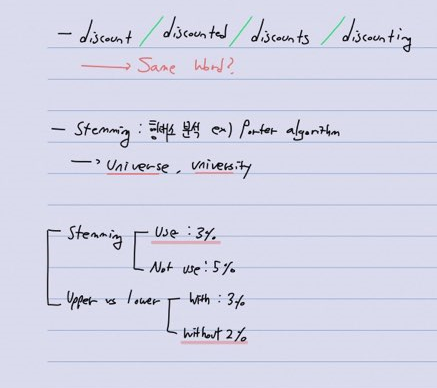 - discount / discounted / discounts / discounting
→ Same word?
- Stemming : 형태소 분석 ex) Porter algorithm
→ Universe, university
Stemming
Use : 3%
Not use : 5%
Upper vs lower
With : 3%
Without 2%